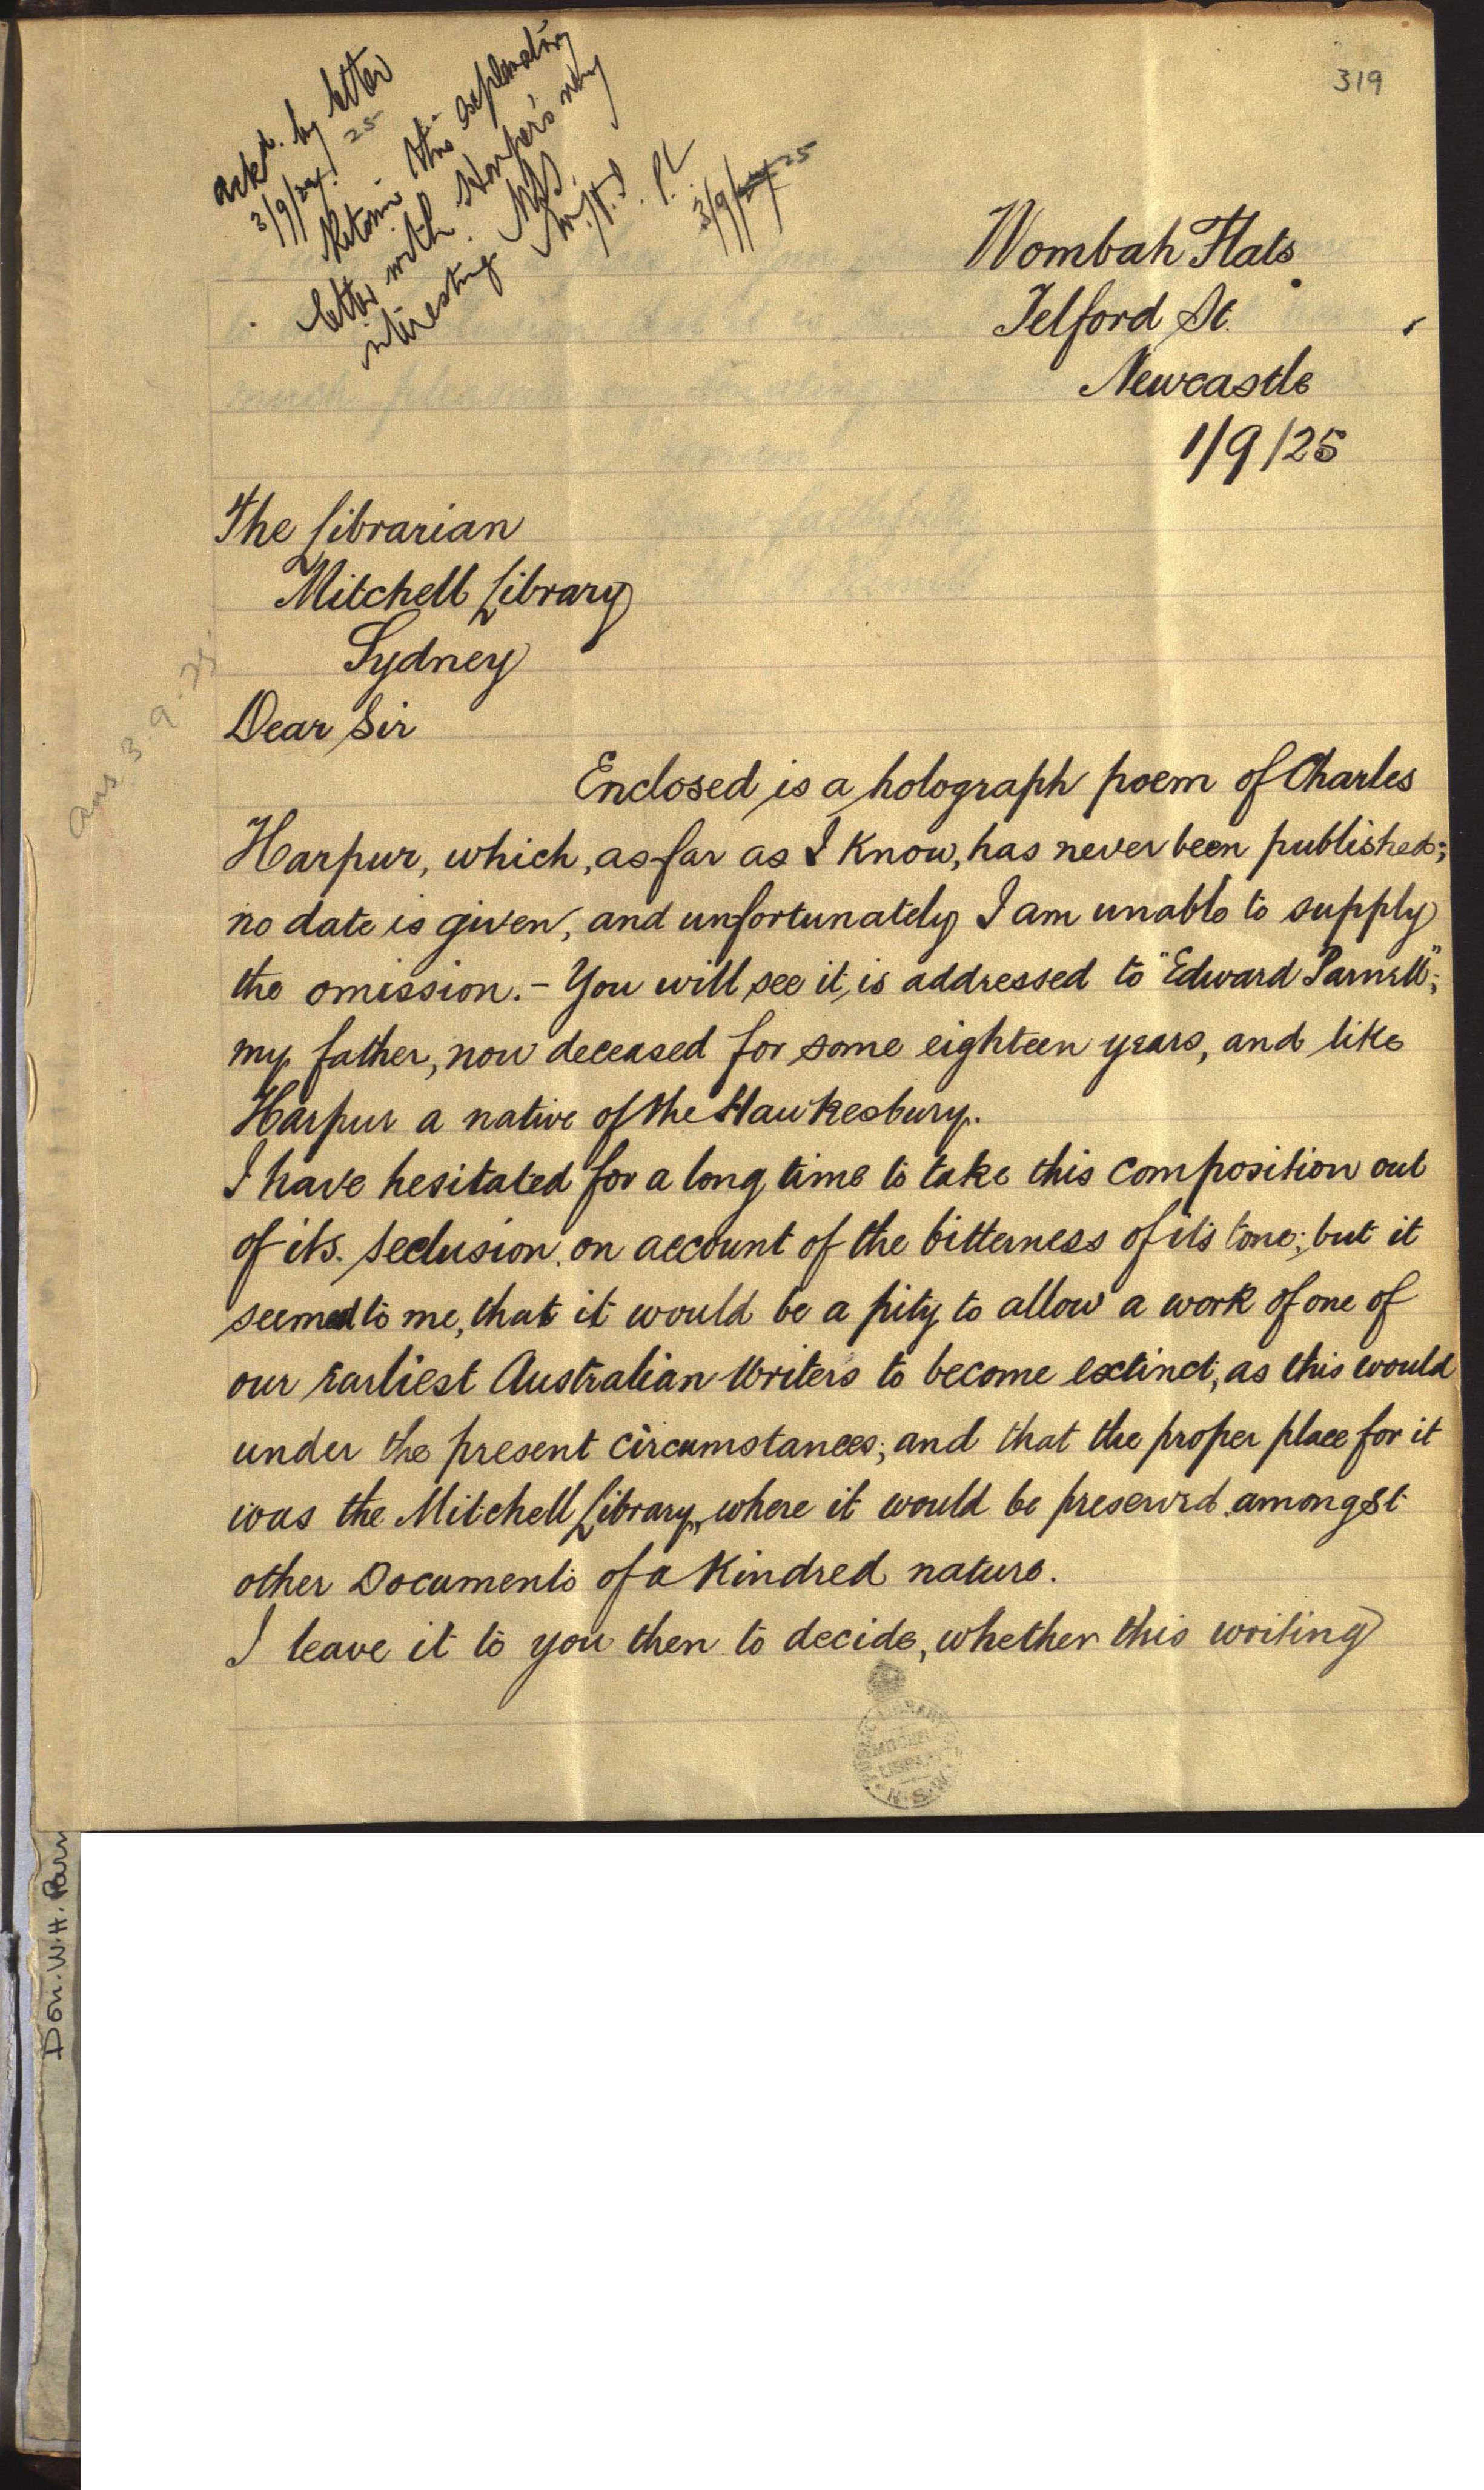 319
ackd. by letter
3/9/24. 25
Retain this explanatory
letter with Harpur's very
interesting MSS.
W.H.I. P.L.
3/9/24 25
Wombah Flats.
Telford St.
Newcastle
1/9/25
The Librarian
Mitchell Library
Sydney
Ans 3.9.25
Dear Sir
Enclosed is a holograph poem of Charles
Harpur, which, as far as I know, has never been published;
no date is given, and unfortunately I am unable to supply
the omission. - You will see it is addressed to "Edward Parnell",
my father, now deceased for some eighteen years, and like
Harpur a native of the Hawkesbury.
I have hesitated for a long time to take this composition out
of its. seclusion. on account of the bitterness of its tone; but it
seemed to me, that it would be a pity to allow a work of one of
our Earliest Australian Writers to become extinct, as this would
under the present circumstances; and that the proper place for it
was the Mitchell Library, where it would be preserved amongst
other Documents of a Kindred nature.
I leave it to you then to decide, whether this writing
PUBLIC LIBRARY
MITCHELL
LIBRARY
N.S.W.
Don. W.H. Parn